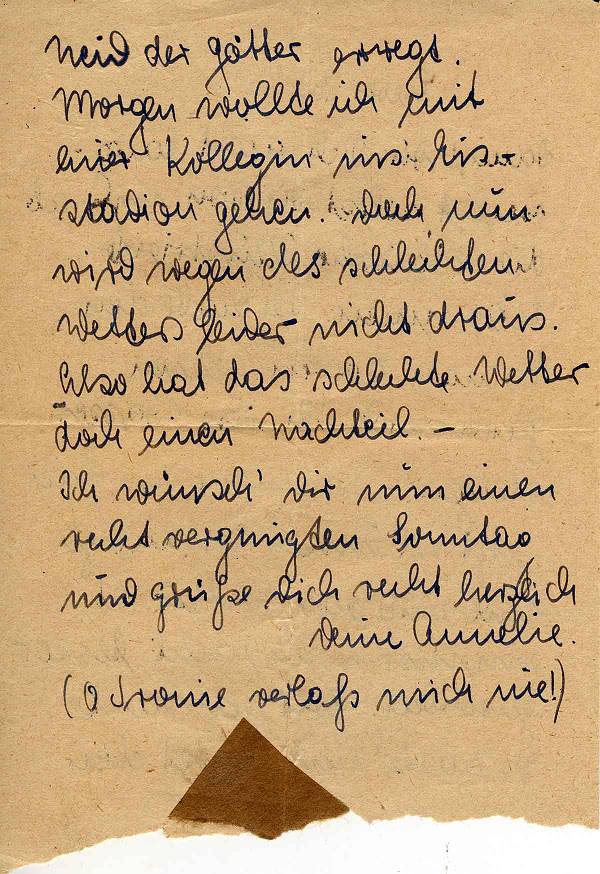 Neid der Götter erregt.
Morgen wollte ich mit
einer Kollegin ins Eis-
stadion gehen. Doch nun
wird wegen des schlechten
Wetters leider nicht draus.
Also hat das schlechte Wetter
doch einen Nachteil. –
Ich wünsch' dir nun einen
recht vergnügten Sonntag
und grüße dich recht herzlich
deine Annelie.
(O Ironie verlaß mich nie!)